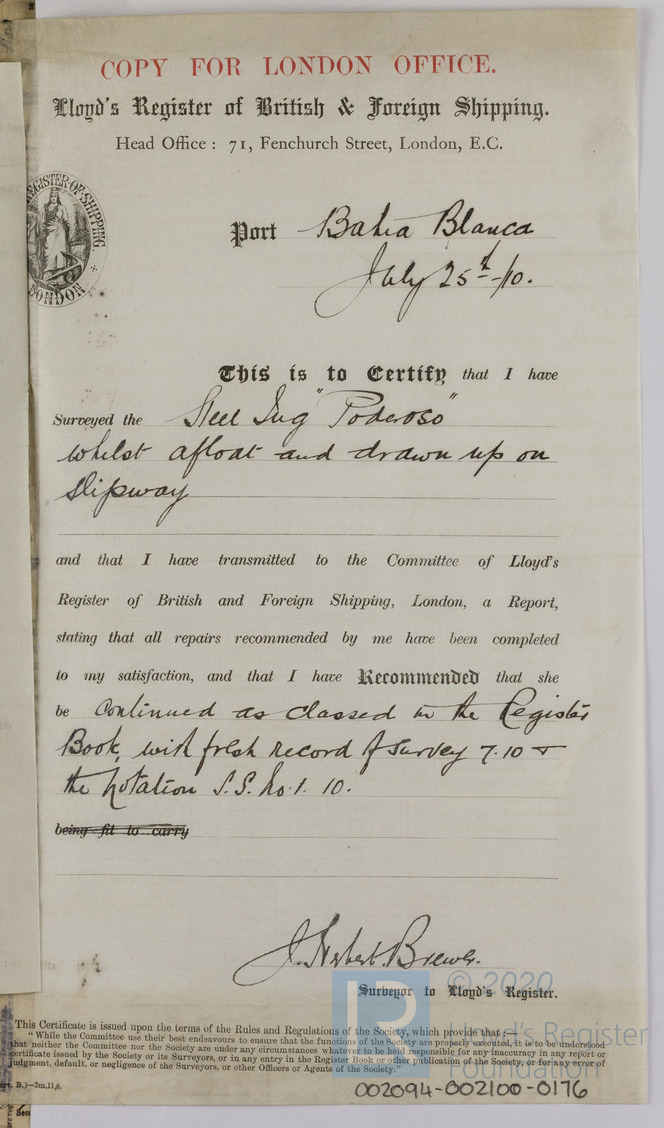 COPY FOR LONDON OFFICE.
Lloyd's Register of British & Foreign Shipping.
Head Office : 71, Fenchurch Street, London, E.C.
REGISTER OF SHIPPING
LONDON
Port Bahia Blanca
July 25th -/10.
This is to Certify that I have
Surveyed the Steel Tug "Poderoso"
whilst afloat and drawn up on
slipway
and that I have transmitted to the Committee of Lloyd's
Register of British and Foreign Shipping, London, a Report,
stating that all repairs recommended by me have been completed
to my satisfaction, and that I have Recommended that she
be continued as classed in the Register
Book, with fresh record of survey 7.10 &
the notation S.S. No.1. 10.
being fit to carry
J. Herbert Brewer.
Surveyor to Lloyd's Register.
© 2020
Lloyd's Register
Foundation
This Certificate is issued upon the terms of the Rules and Regulations of the Society, which provide that :—
"While the Committee use their best endeavours to ensure that the functions of the Society are properly executed, it is to be understood
that neither the Committee nor the Society are under any circumstances whatever to be held responsible for any inaccuracy in any report or
certificate issued by the Society or its Surveyors, or in any entry in the Register Book or other publication of the Society, or for any error of
judgment, default, or negligence of the Surveyors, or other Officers or Agents of the Society."
rt. B.)—2m,11,8.
002094-002100-0176